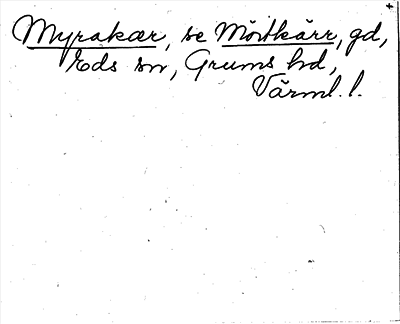 Myrakær, se Möitkärr, gd,
Eds sn, Grums hd,
Värml. l.